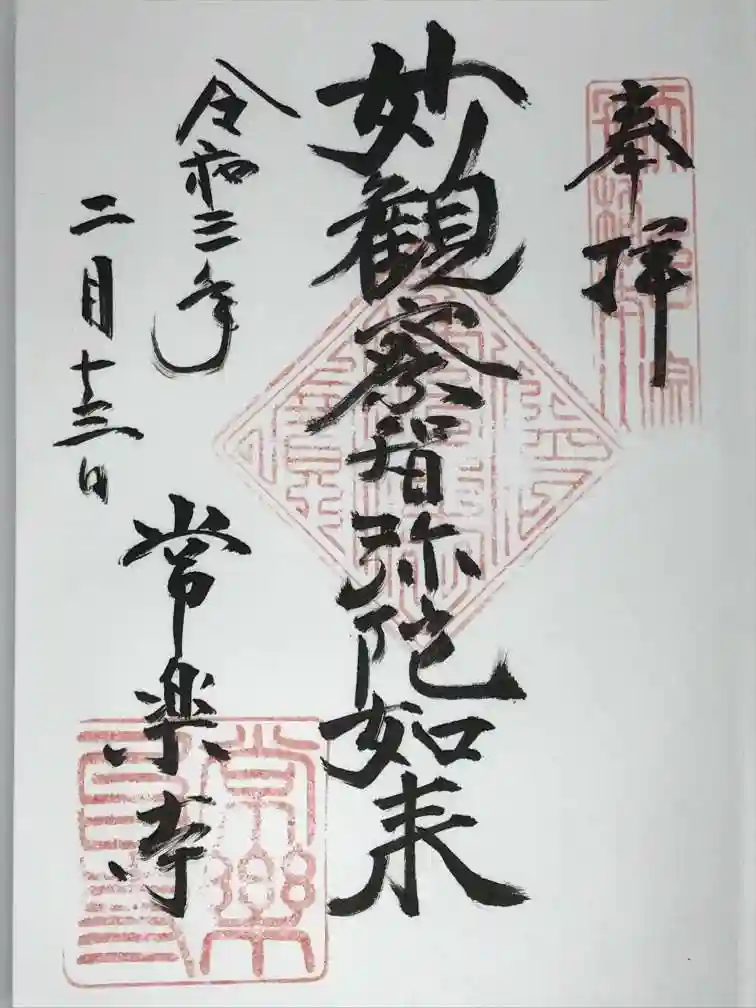 奉拝
妙観察智弥陀如来
令和三年
二月十三日
常楽寺